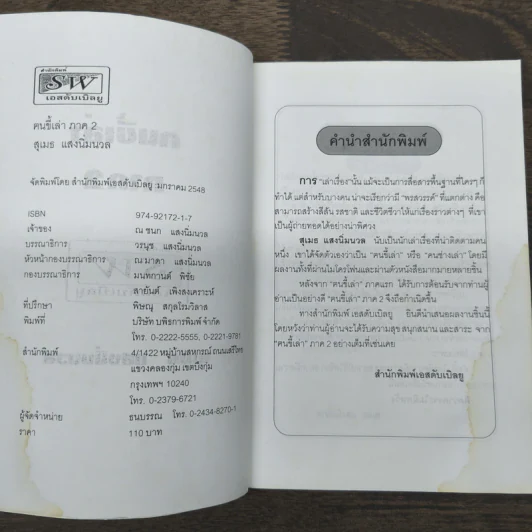 สำนักพิมพ์
SW
เอสดับเบิลยู
คนขี้เล่า ภาค 2
สุเมธ แสงนิ่มนวล
จัดพิมพ์โดย สำนักพิมพ์เอสดับเบิลยู :มกราคม 2548
ISBN 974-92172-1-7
เจ้าของ ณ ชนก แสงนิ่มนวล
บรรณาธิการ วรนุช แสงนิ่มนวล
หัวหน้ากองบรรณาธิการ ณ มาดา แสงนิ่มนวล
กองบรรณาธิการ มนทกานต์ พิชัย
สายันต์ เพิงสงเคราะห์
ที่ปรึกษา พิษณุ สกุลโรมวิลาส
พิมพ์ที่ บริษัท บพิธการพิมพ์ จำกัด
โทร. 0-2222-5555, 0-2221-9781
สำนักพิมพ์ 4/1422 หมู่บ้านสหกรณ์ ถนนเสรีไทย
แขวงคลองกุ่ม เขตบึงกุ่ม
กรุงเทพฯ 10240
โทร. 0-2379-6721
ผู้จัดจำหน่าย ธนบรรณ โทร. 0-2434-8270-1
ราคา 110 บาท
คำนำสำนักพิมพ์
การ "เล่าเรื่อง"นั้น แม้จะเป็นการสื่อสารพื้นฐานที่ใครๆ ก็
ทำได้ แต่สำหรับบางคน น่าจะเรียกว่ามี "พรสวรรค์" ที่แตกต่าง คือ
สามารถสร้างสีสัน รสชาติ และชีวิตชีวาให้แก่เรื่องราวต่างๆ ที่เขา
เป็นผู้ถ่ายทอดได้อย่างน่าพิศวง
สุเมธ แสงนิ่มนวล นับเป็นนักเล่าเรื่องที่น่าติดตามคน
หนึ่ง เขาได้จัดตัวเองว่าเป็น "คนขี้เล่า" หรือ "คนช่างเล่า" โดยมี
ผลงานทั้งที่ผ่านไมโครโฟนและผ่านตัวหนังสือมากมายหลายชิ้น
หลังจาก "คนขี้เล่า" ภาคแรก ได้รับการต้อนรับจากท่านผู้
อ่านเป็นอย่างดี "คนขี้เล่า" ภาค 2 จึงถือกำเนิดขึ้น
ทางสำนักพิมพ์ เอสดับเบิลยู ยินดีนำเสนอผลงานชิ้นนี้
โดยหวังว่าท่านผู้อ่านจะได้รับความสุข สนุกสนาน และสาระ จาก
"คนขี้เล่า" ภาค 2 อย่างเต็มที่เช่นเคย
สำนักพิมพ์เอสดับเบิลยู